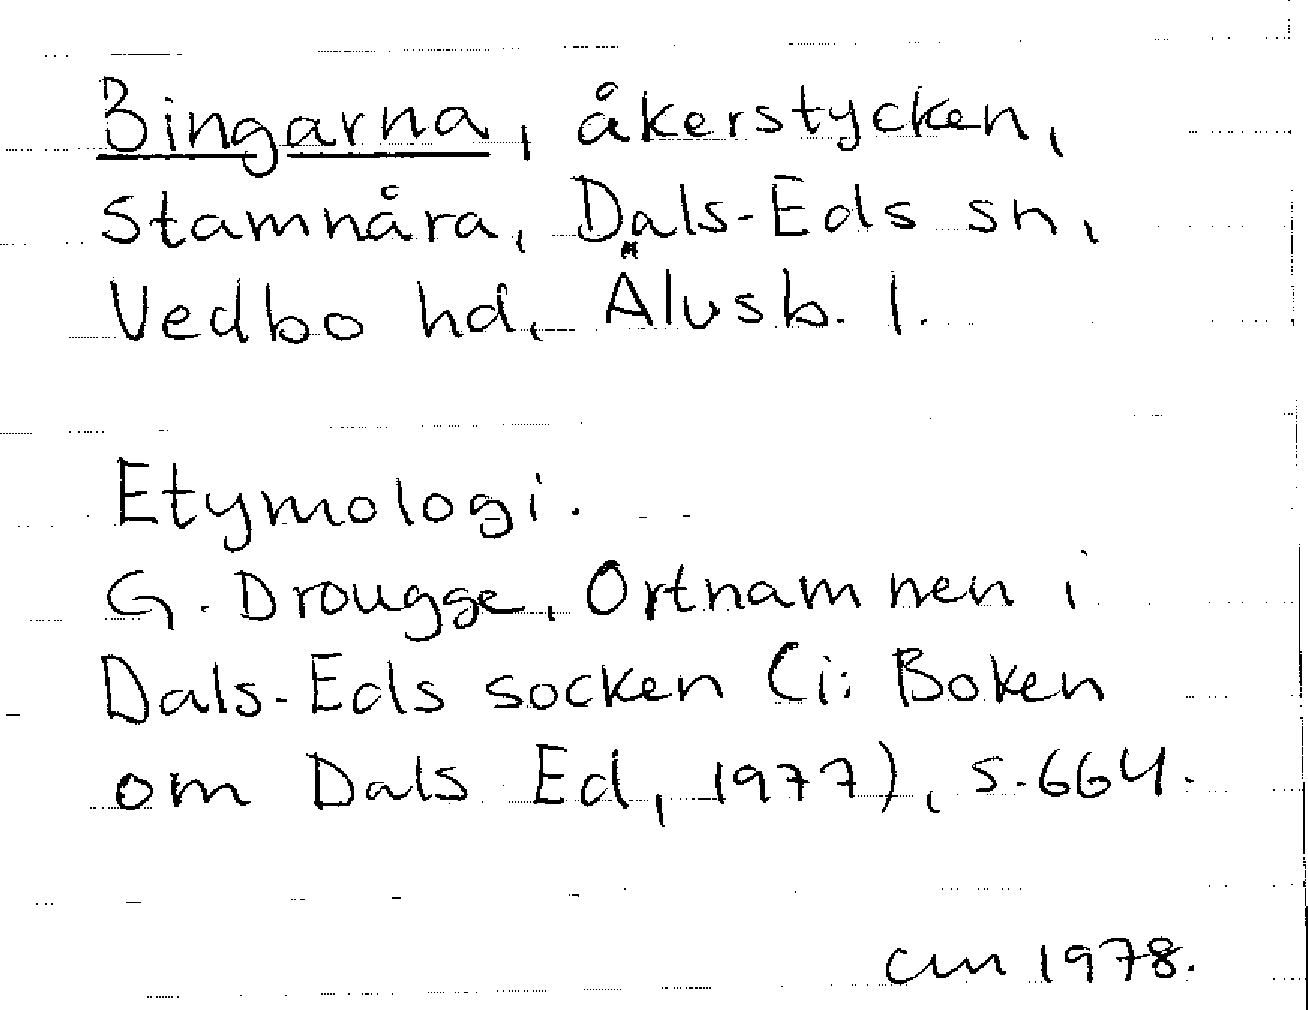 Bingarna, åkerstycken,
Stamnåra, Dals-Eds sn,
Vedbo hd, Älvsb. l.
Etymologi.
G. Drougge, Ortnamnen i
Dals-Eds socken (i: Boken
om Dals Ed, 1977), s. 664.
cm 1978.